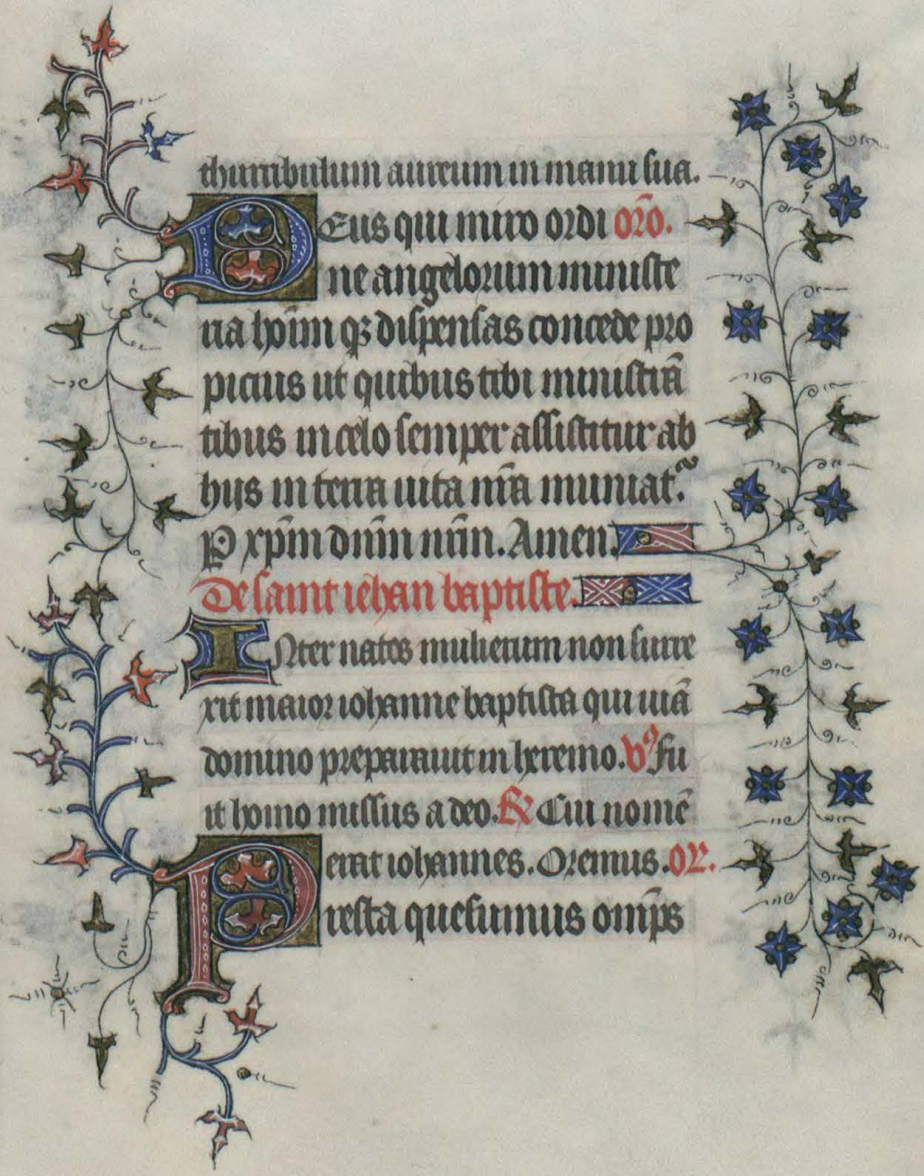 thurribulum aureum in manu sua.
Deus qui miro ordi orō.
ne angelorum ministe
ria hoīm qꝫ dispensas concede pro
picius ut quibus tibi ministrā
tibus in celo semper assistitur ab
hijs in terra uita nr̄a muniat᷑.
Ꝑ xp̄m dn̄m nr̄m. Amen.
De saint iehan baptiste.
Inter natos mulierum non surre
xit maior iohanne baptista qui uiā
domino preparauit in heremo. vꝰ Fu
it homo missus a deo. ℟ Cui nomē
erat iohannes. Oremus. or.
Presta quesumus omp̄s